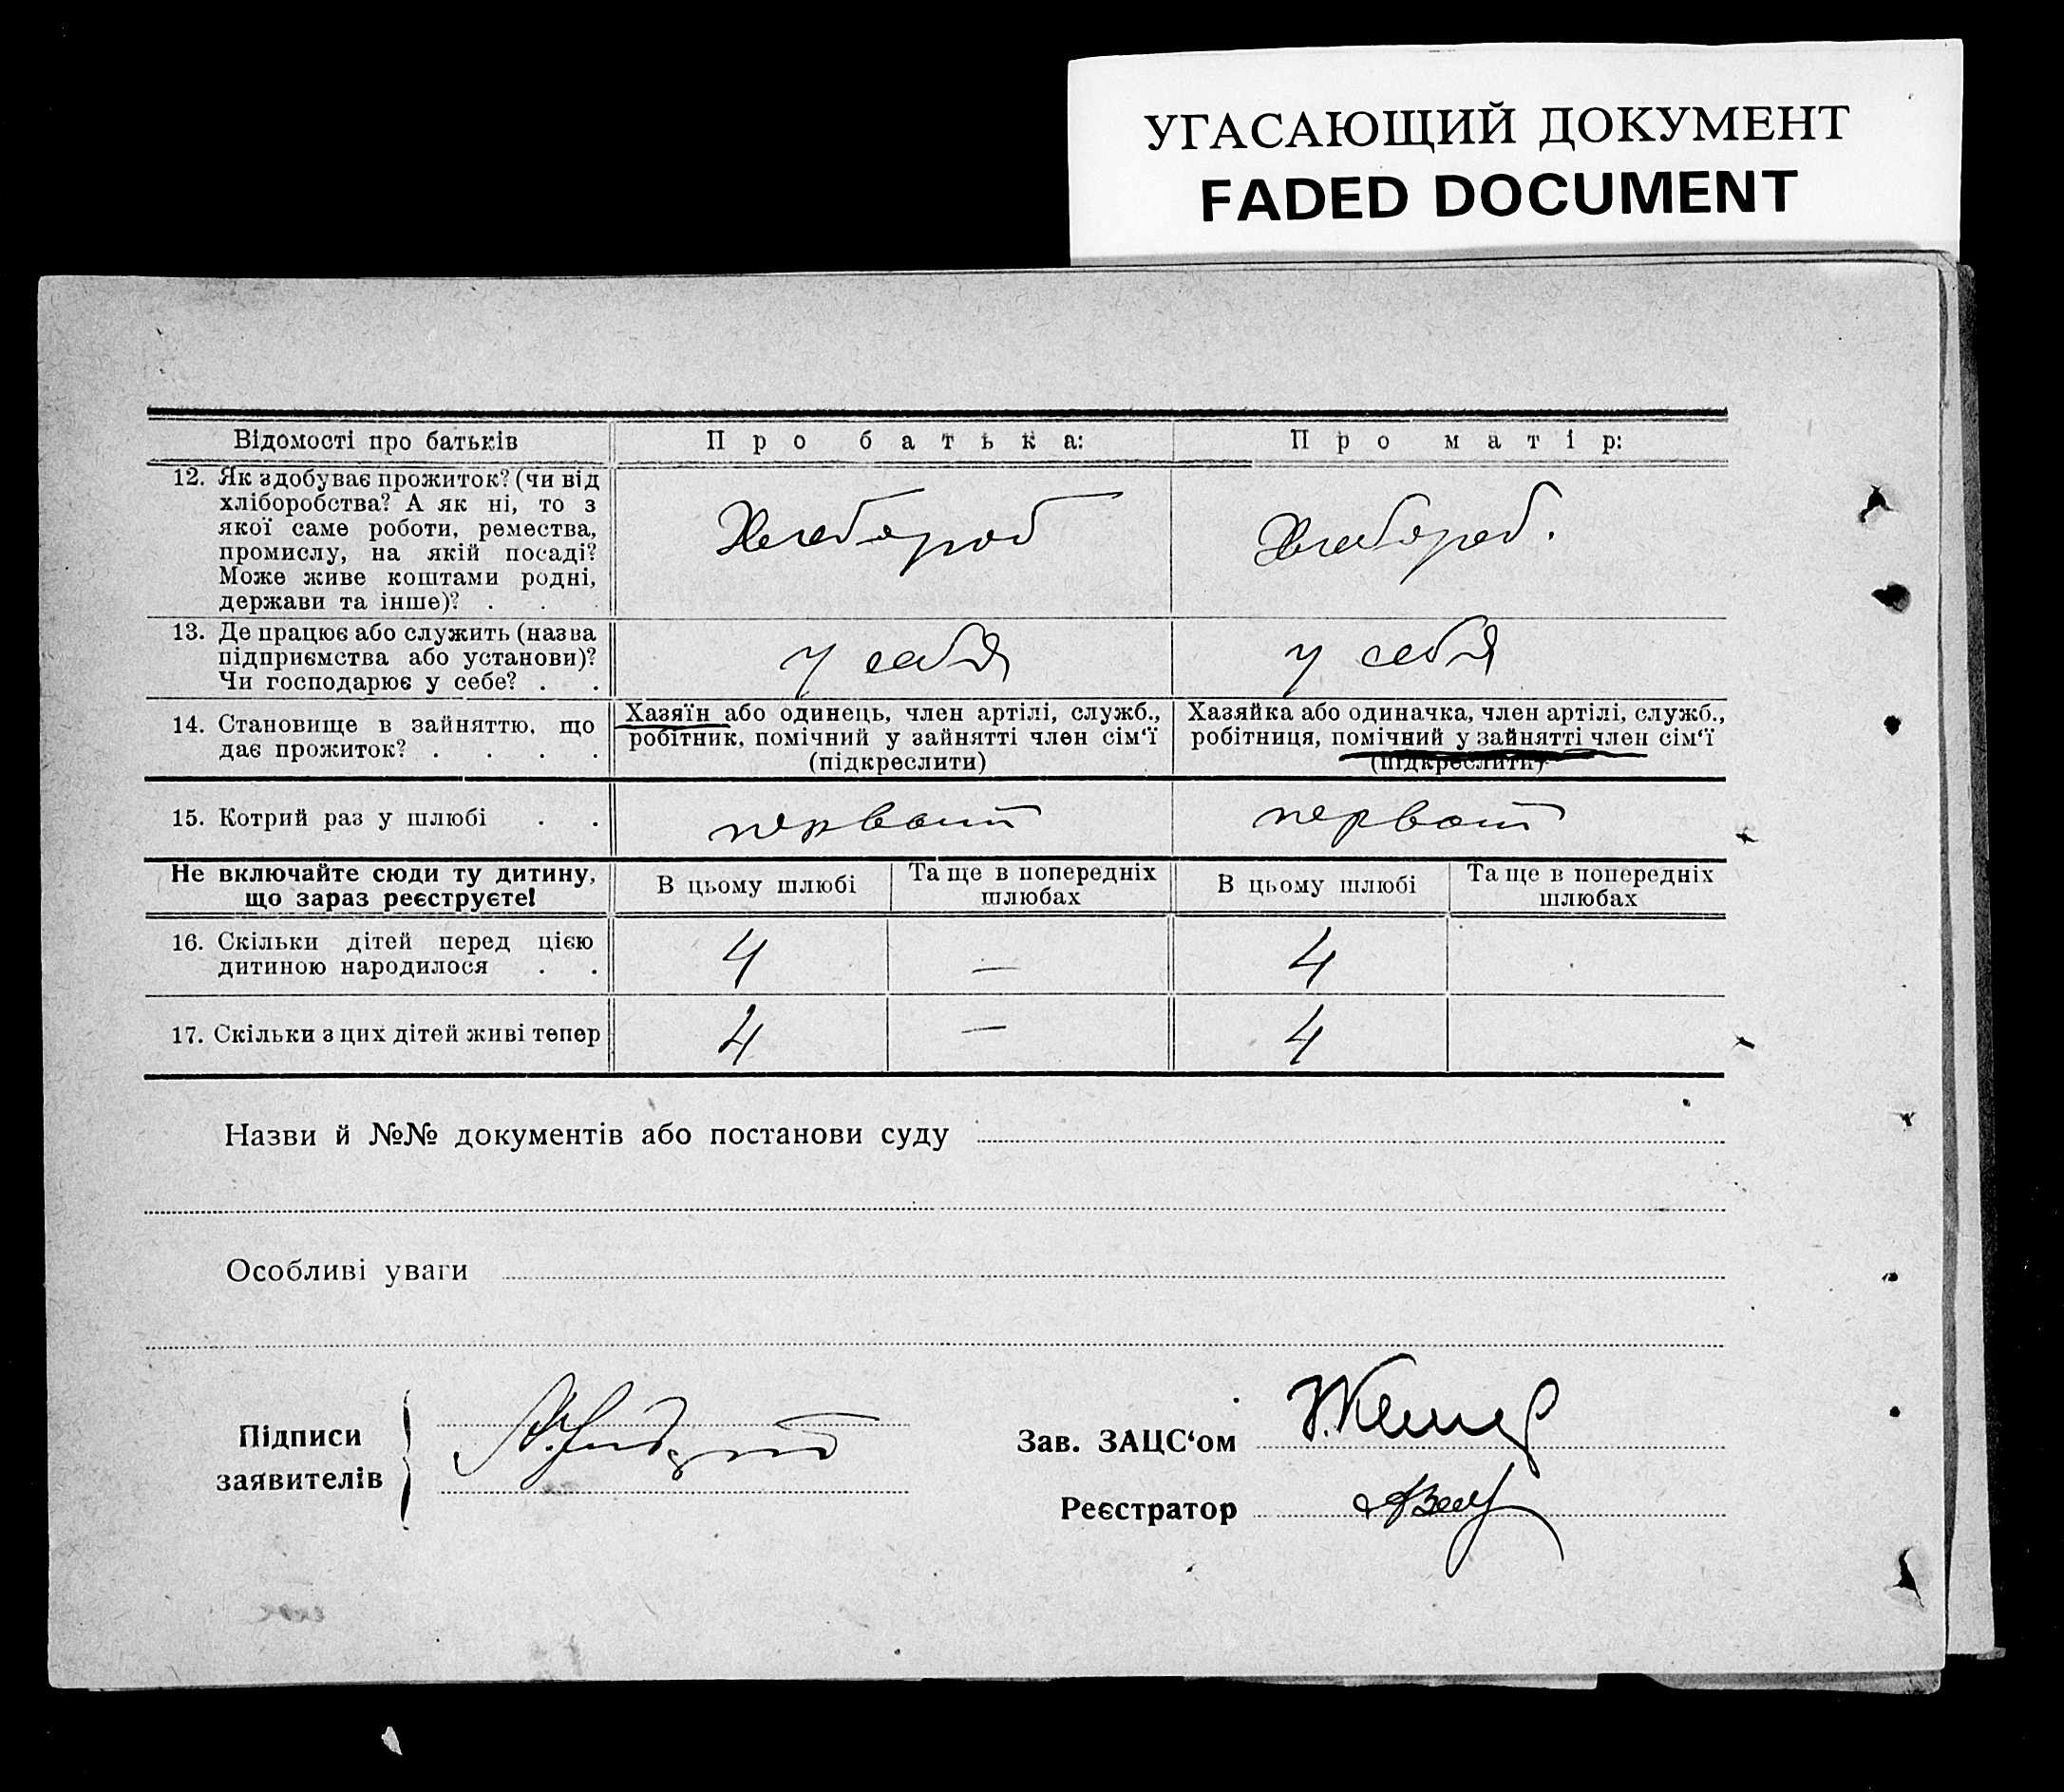 УГАСАЮЩИЙ ДОКУМЕНТ
FADED DOCUMENT
Відомості про батьків
Про батька:
Про матір:
12. Як здобуває прожиток? (чи від
хліборобства? А як ні, то з
якої саме роботи, ремества,
промислу, на якій посаді?
Може живе коштами родні,
держави та інше)? . .
Хлебороб
Хлебороб.
13. Де працює або служить (назва
підприємства або установи)?
Чи господарює у себе? . .
у себя
у себя
14. Становище в зайняттю, що
дає прожиток? . . . .
Хазяїн або одинець, член артілі, служб.,
робітник, помічний у зайнятті член сім‘ї
(підкреслити)
Хазяйка або одиначка, член артілі, служб.,
робітниця, помічний у зайнятті член сім‘ї
(підкреслити)
15. Котрий раз у шлюбі . .
первом
первом
Не включайте сюди ту дитину,
що зараз реєструєте!
В цьому шлюбі
Та ще в попередніх
шлюбах
В цьому шлюбі
Та ще в попередніх
шлюбах
16. Скільки дітей перед цією
дитиною народилося . .
4
—
4
17. Скільки з цих дітей живі тепер
4
—
4
Назви й №№ документів або постанови суду
Особливі уваги
Підписи
заявителів
Зав. ЗАЦС‘ом
Реєстратор